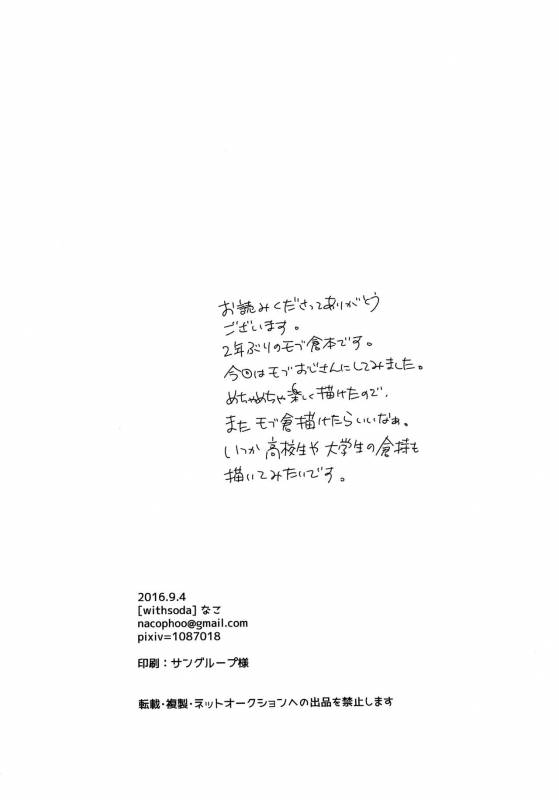 お読みくださってありがとう
ございます。
2年ぶりのモブ倉本です。
今回はモブおじさんにしてみました。
めちゃめちゃ楽しく描けたので、
また モブ倉描けたらいいなぁ。
いつか 高校生や 大学生の倉持も
描いてみたいです。
2016.9.4
[withsoda] なこ
nacophoo@gmail.com
pixiv=1087018
印刷：サングループ様
転載・複製・ネットオークションへの出品を禁止します